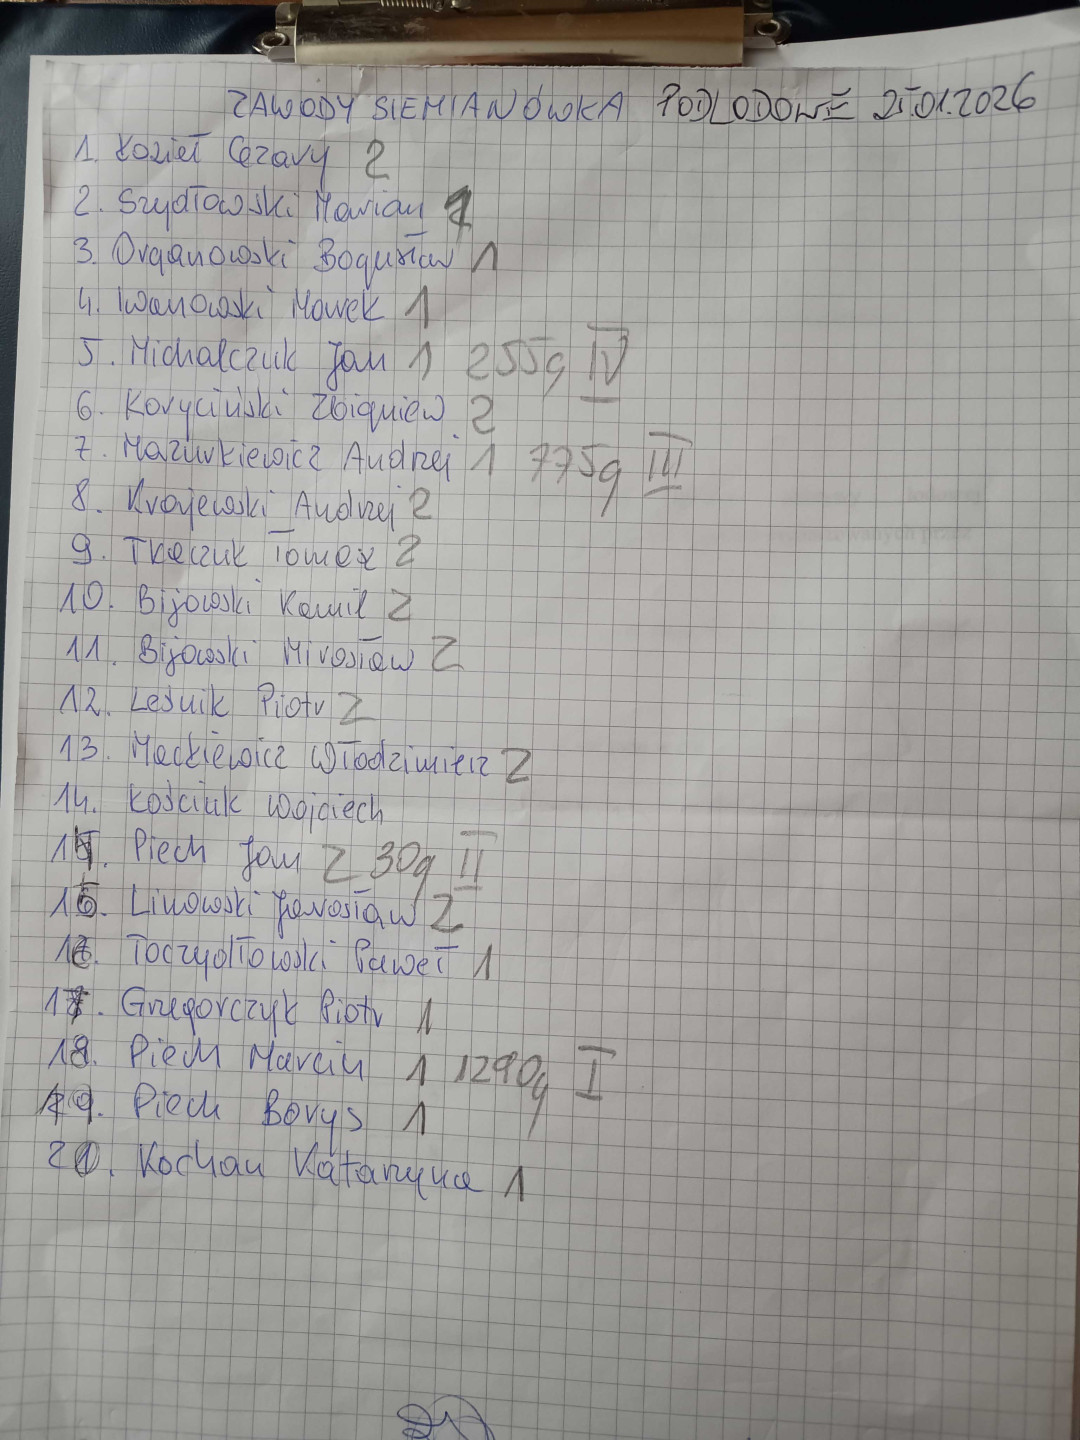 ZAWODY SIEMIANÓWKA PODLODOWE 25.01.2026
1. Kozieł Cezary 2
2. Szydłowski Marian 1
3. Organowski Bogusław 1
4. Iwanowski Marek 1
5. Michalczuk Jan 1 255g IV
6. Koryciński Zbigniew 2
7. Mazurkiewicz Andrzej 1 775g III
8. Krajewski Andrzej 2
9. Tkaczuk Tomek 2
10. Bijowski Kamil 2
11. Bijowski Mirosław 2
12. Leśnik Piotr 2
13. Mackiewicz Włodzimierz 2
14. Kościuk Wojciech
14. Piech Jan 2 30g II
15. Linowski Jarosław 2
16. Toczydłowski Paweł 1
17. Grzegorczyk Piotr 1
18. Piech Marcin 1 1290g I
19. Piech Borys 1
20. Kochan Katarzyna 1